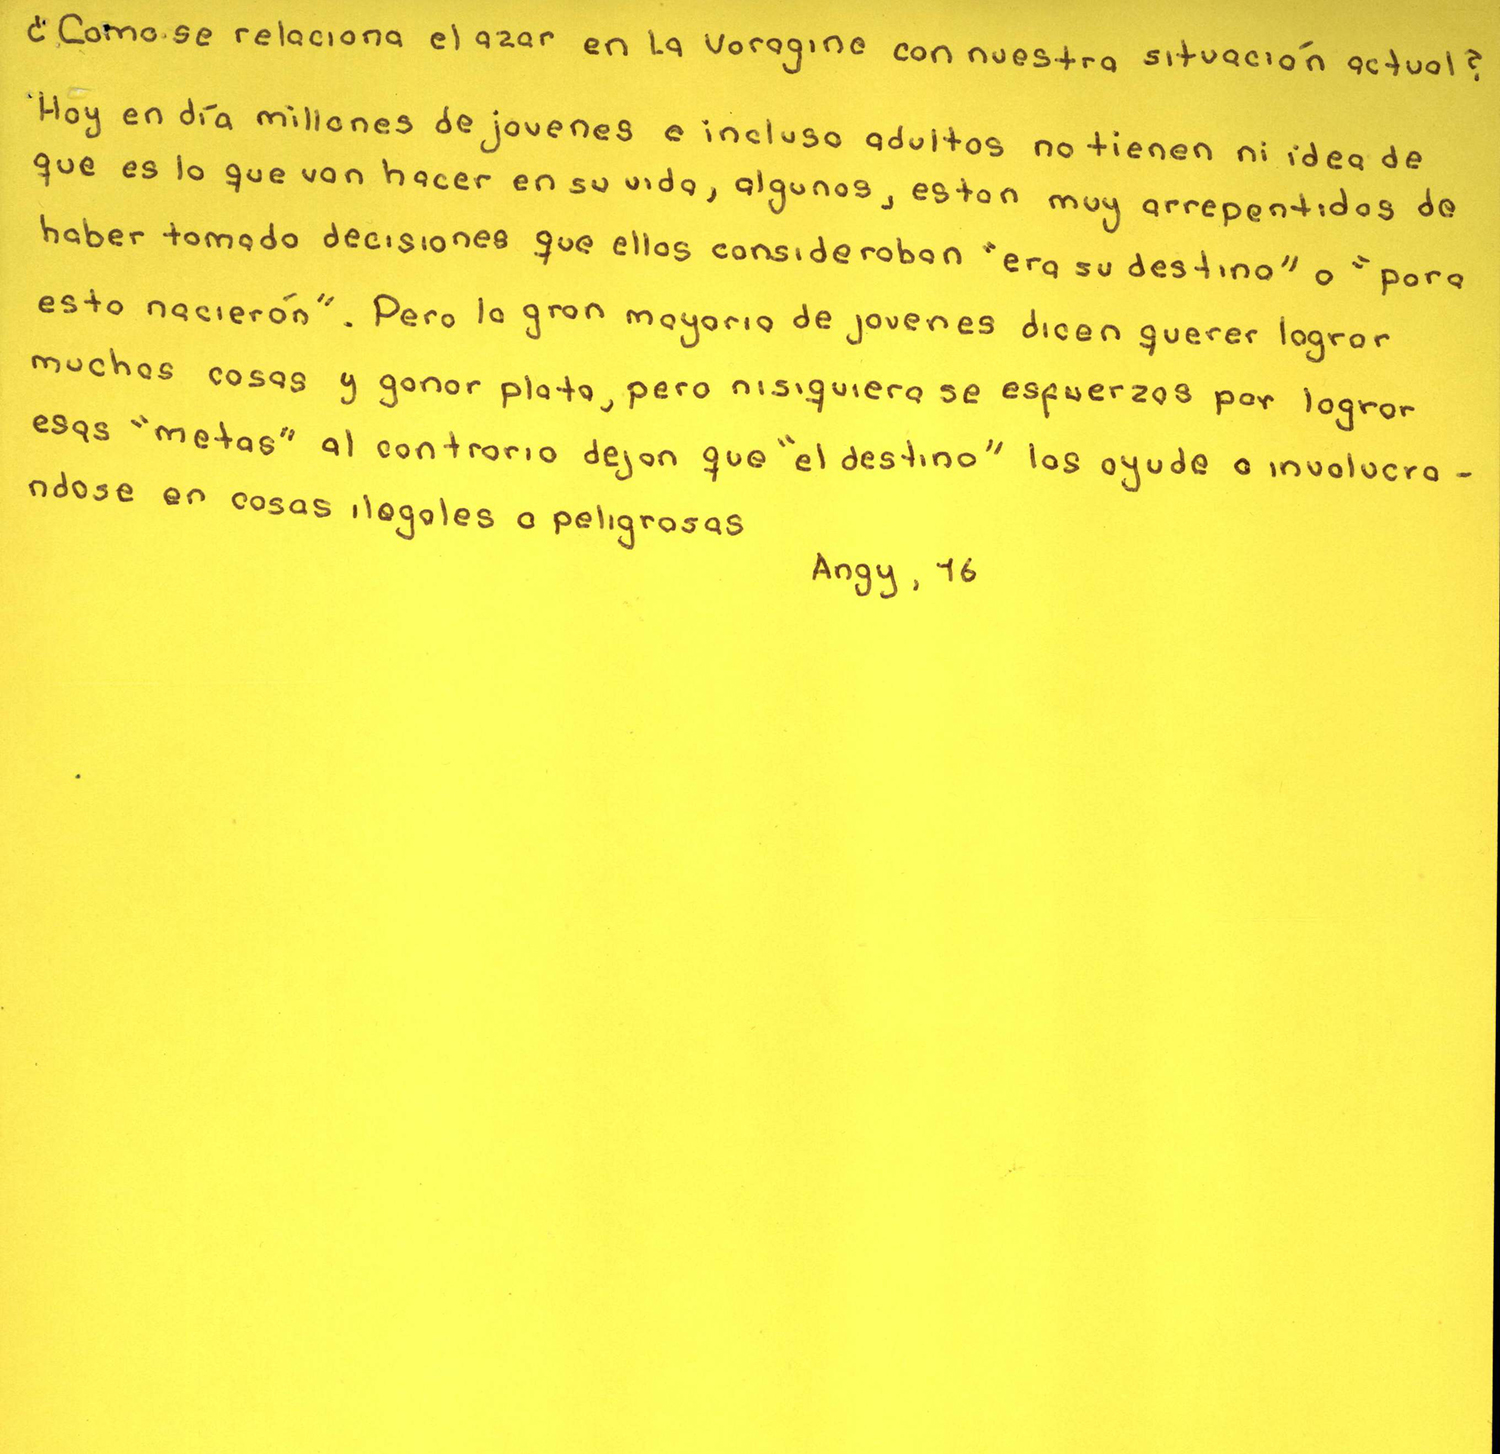 ¿Como se relaciona el azar en La Voragine con nuestra situación actual?
Hoy en día millones de jovenes e incluso adultos no tienen ni idea de
que es lo que van hacer en su vida, algunos, estan muy arrepentidos de
haber tomado decisiones que ellos consideraban "era su destino" o "para
esto nacierón". Pero la gran mayoria de jovenes dicen querer lograr
muchas cosas y ganar plata, pero nisiquiera se esfuerzas por lograr
esas "metas" al contrario dejan que "el destino" los ayude o involucra-
ndose en cosas ilegales o peligrosas
Angy, 16